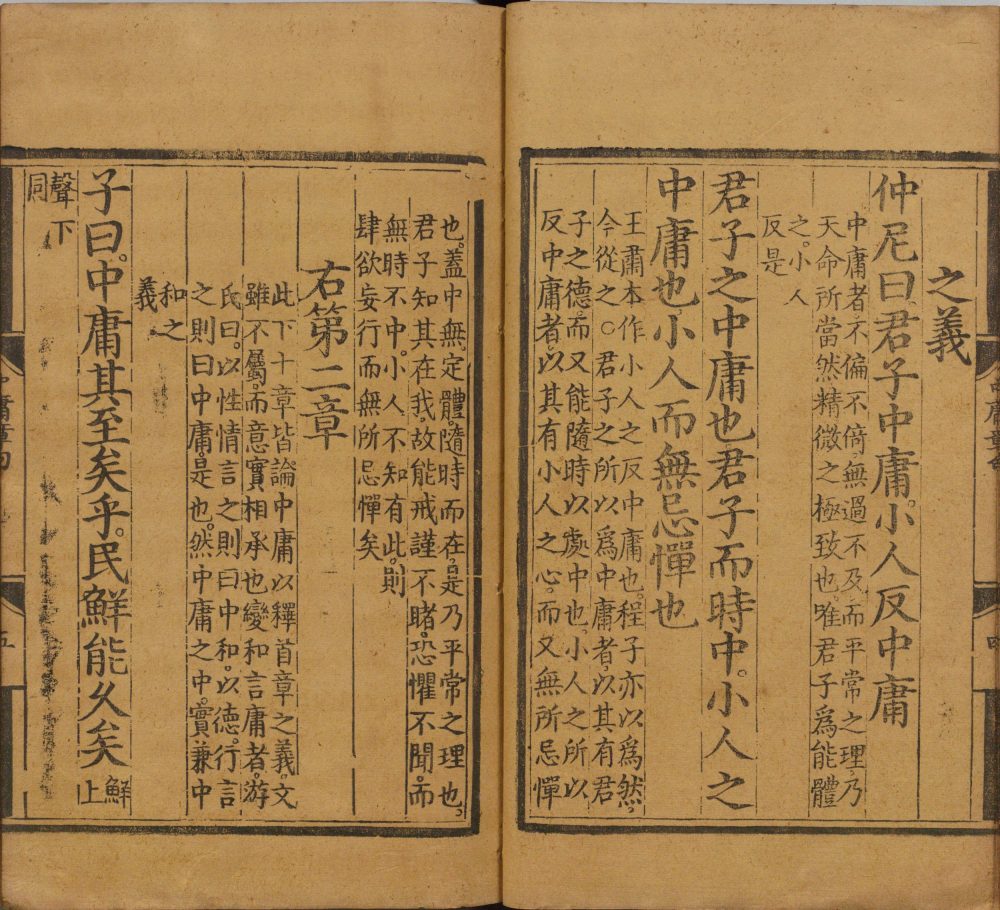 之義
仲尼曰君子中庸。小人反中庸
中庸者不偏不倚無過不及而平常之理乃
天命所當然精微之極致也。唯君子爲能體
之。小人
反是
君子之中庸也君子而時中。小人之
中庸也。小人而無忌憚也
王肅本作小人之反中庸也。程子亦以爲然。
今從之。○君子之所以爲中庸者以其有君
子之德。而又能隨時以處中也。小人之所以
反中庸者。以其有小人之心。而又無所忌憚
也。蓋中無定體。隨時而在。是乃平常之理也。
君子知其在我。故能戒謹不睹。恐懼不聞。而
無時不中。小人不知有此。則
肆欲妄行而無所忌憚矣
右第二章
此下十章皆論中庸以釋首章之義。文
雖不屬。而意實相承也變和言庸者。游
氏曰。以性情言之則曰中和。以德行言
之則曰中庸。是也。然中庸之中。實兼中
和之
義
子曰。中庸其至矣乎。民鮮能久矣
鮮上
聲下
同
中庸章句
五